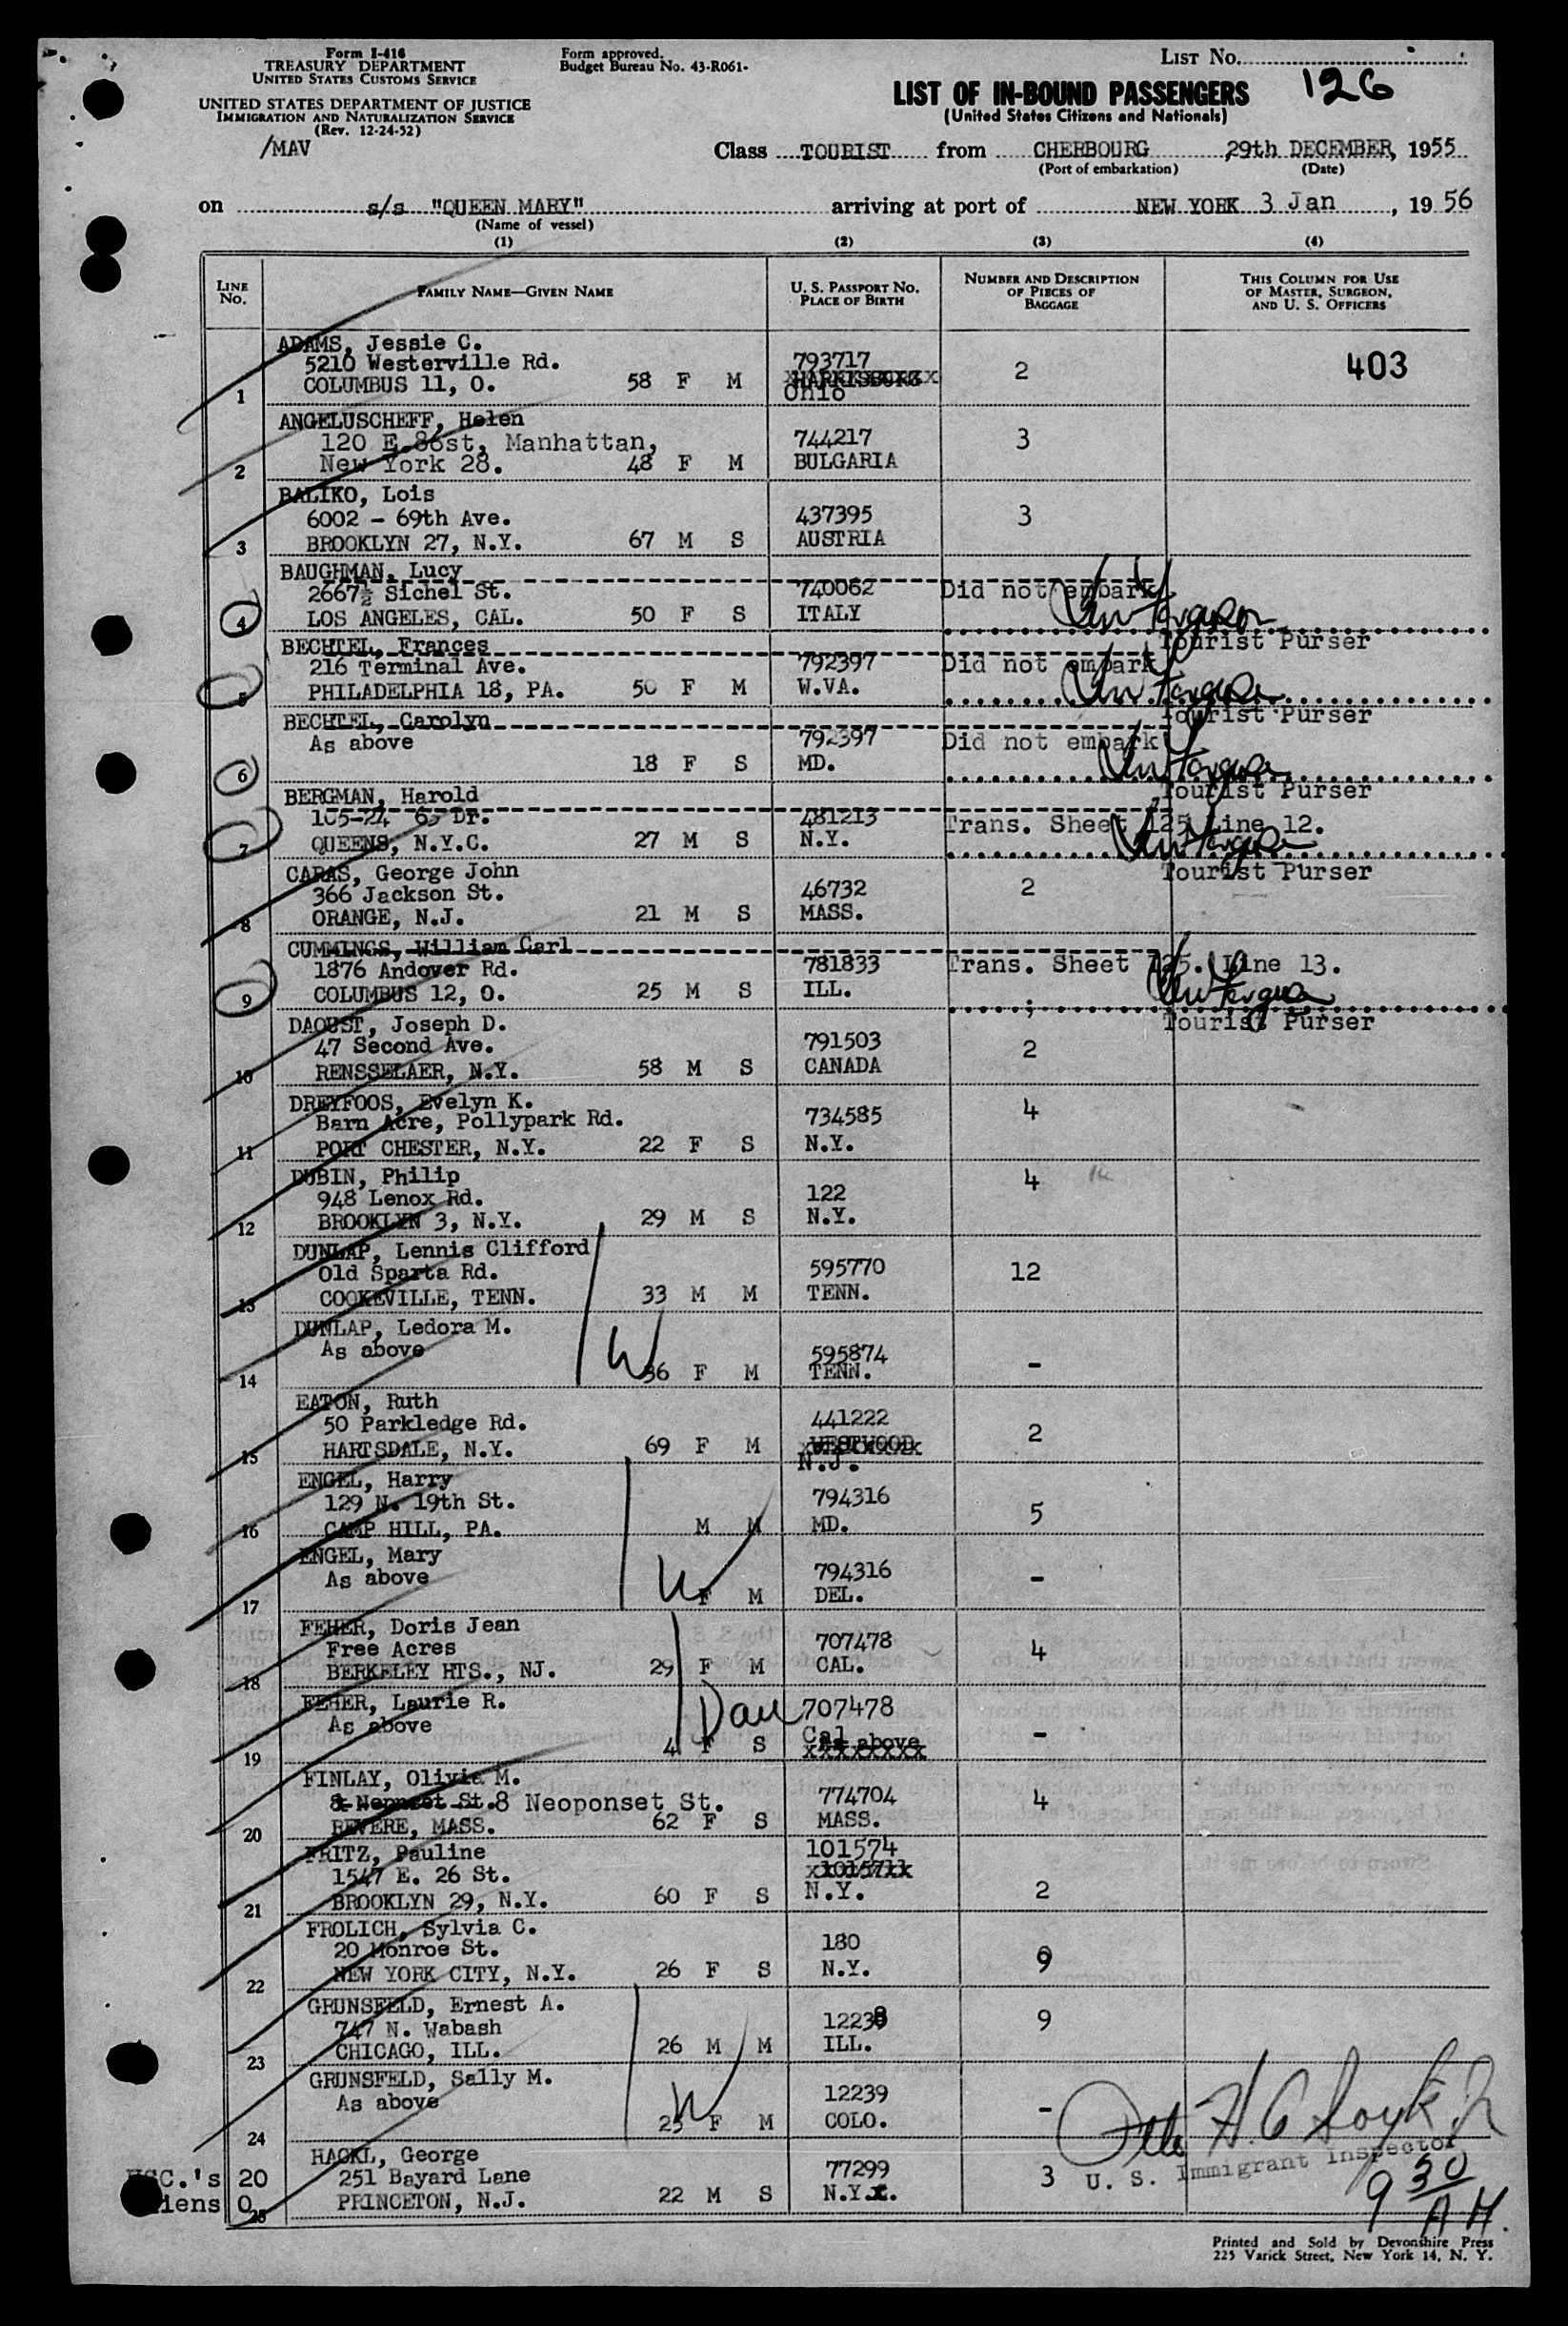 Form I-416
TREASURY DEPARTMENT
UNITED STATES CUSTOMS SERVICE
Form approved.
Budget Bureau No. 43-R061-
LIST No.
126
UNITED STATES DEPARTMENT OF JUSTICE
IMMIGRATION AND NATURALIZATION SERVICE
(Rev. 12-24-52)
/MAV
LIST OF IN-BOUND PASSENGERS
(United States Citizens and Nationals)
Class TOURIST from CHERBOURG 29th DECEMBER, 1955
(Port of embarkation) (Date)
on s/s "QUEEN MARY" arriving at port of NEW YORK 3 Jan, 1956
(Name of vessel)
(1) (2) (3) (4)
LINE No. FAMILY NAME—GIVEN NAME U. S. PASSPORT No. PLACE OF BIRTH NUMBER AND DESCRIPTION OF PIECES OF BAGGAGE THIS COLUMN FOR USE OF MASTER, SURGEON, AND U. S. OFFICERS
ADAMS, Jessie C.
5210 Westerville Rd. 793717 2 403
1 COLUMBUS 11, O. 58 F M HARRISBURG
Ohio
ANGELUSCHEFF, Helen
120 E.86st, Manhattan, 744217 3
2 New York 28. 48 F M BULGARIA
BALIKO, Lois
6002 - 69th Ave. 437395 3
3 BROOKLYN 27, N.Y. 67 M S AUSTRIA
BAUGHMAN, Lucy
2667½ Sichel St. 740062 Did not embark
4 LOS ANGELES, CAL. 50 F S ITALY
Tourist Purser
BECHTEL, Frances
216 Terminal Ave. 792397 Did not embark
5 PHILADELPHIA 18, PA. 50 F M W.VA.
Tourist Purser
BECHTEL, Carolyn
As above 792397 Did not embark
6 18 F S MD.
Tourist Purser
BERGMAN, Harold
105-24 65 Dr. 481213 Trans. Sheet 125 Line 12.
7 QUEENS, N.Y.C. 27 M S N.Y.
Tourist Purser
CARAS, George John
366 Jackson St. 46732 2
8 ORANGE, N.J. 21 M S MASS.
CUMMINGS, William Carl
1876 Andover Rd. 781833 Trans. Sheet 125. Line 13.
9 COLUMBUS 12, O. 25 M S ILL.
Tourist Purser
DAOUST, Joseph D.
47 Second Ave. 791503 2
10 RENSSELAER, N.Y. 58 M S CANADA
DREYFOOS, Evelyn K.
Barn Acre, Pollypark Rd. 734585 4
11 PORT CHESTER, N.Y. 22 F S N.Y.
DUBIN, Philip
948 Lenox Rd. 122 4
12 BROOKLYN 3, N.Y. 29 M S N.Y.
DUNLAP, Lennis Clifford
Old Sparta Rd. 595770 12
13 COOKEVILLE, TENN. 33 M M TENN.
DUNLAP, Ledora M.
As above 595874 -
14 W 36 F M TENN.
EATON, Ruth
50 Parkledge Rd. 441222 2
15 HARTSDALE, N.Y. 69 F M WESTWOOD
N.J.
ENGEL, Harry
129 N. 19th St. 794316 5
16 CAMP HILL, PA. M M MD.
ENGEL, Mary
As above 794316 -
17 W F M DEL.
FEHER, Doris Jean
Free Acres 707478 4
18 BERKELEY HTS., NJ. 29 F M CAL.
FEHER, Laurie R.
As above Dau 707478 -
19 4 F S Cal As above
FINLAY, Olivia M.
& Neponset St. 8 Neoponset St. 774704 4
20 REVERE, MASS. 62 F S MASS.
FRITZ, Pauline 101574
1547 E. 26 St. 101571 2
21 BROOKLYN 29, N.Y. 60 F S N.Y.
FROLICH, Sylvia C.
20 Monroe St. 180 9
22 NEW YORK CITY, N.Y. 26 F S N.Y.
GRUNSFELD, Ernest A.
747 N. Wabash 12238 9
23 CHICAGO, ILL. 26 M M ILL.
GRUNSFELD, Sally M.
As above 12239 -
24 W 25 F M COLO.
HACKL, George
251 Bayard Lane 77299 3
25 PRINCETON, N.J. 22 M S N.Y.
U. S. Immigrant Inspector
9 30 A M.
USC.'s 20
Aliens 0
Printed and Sold by Devonshire Press
225 Varick Street, New York 14, N. Y.